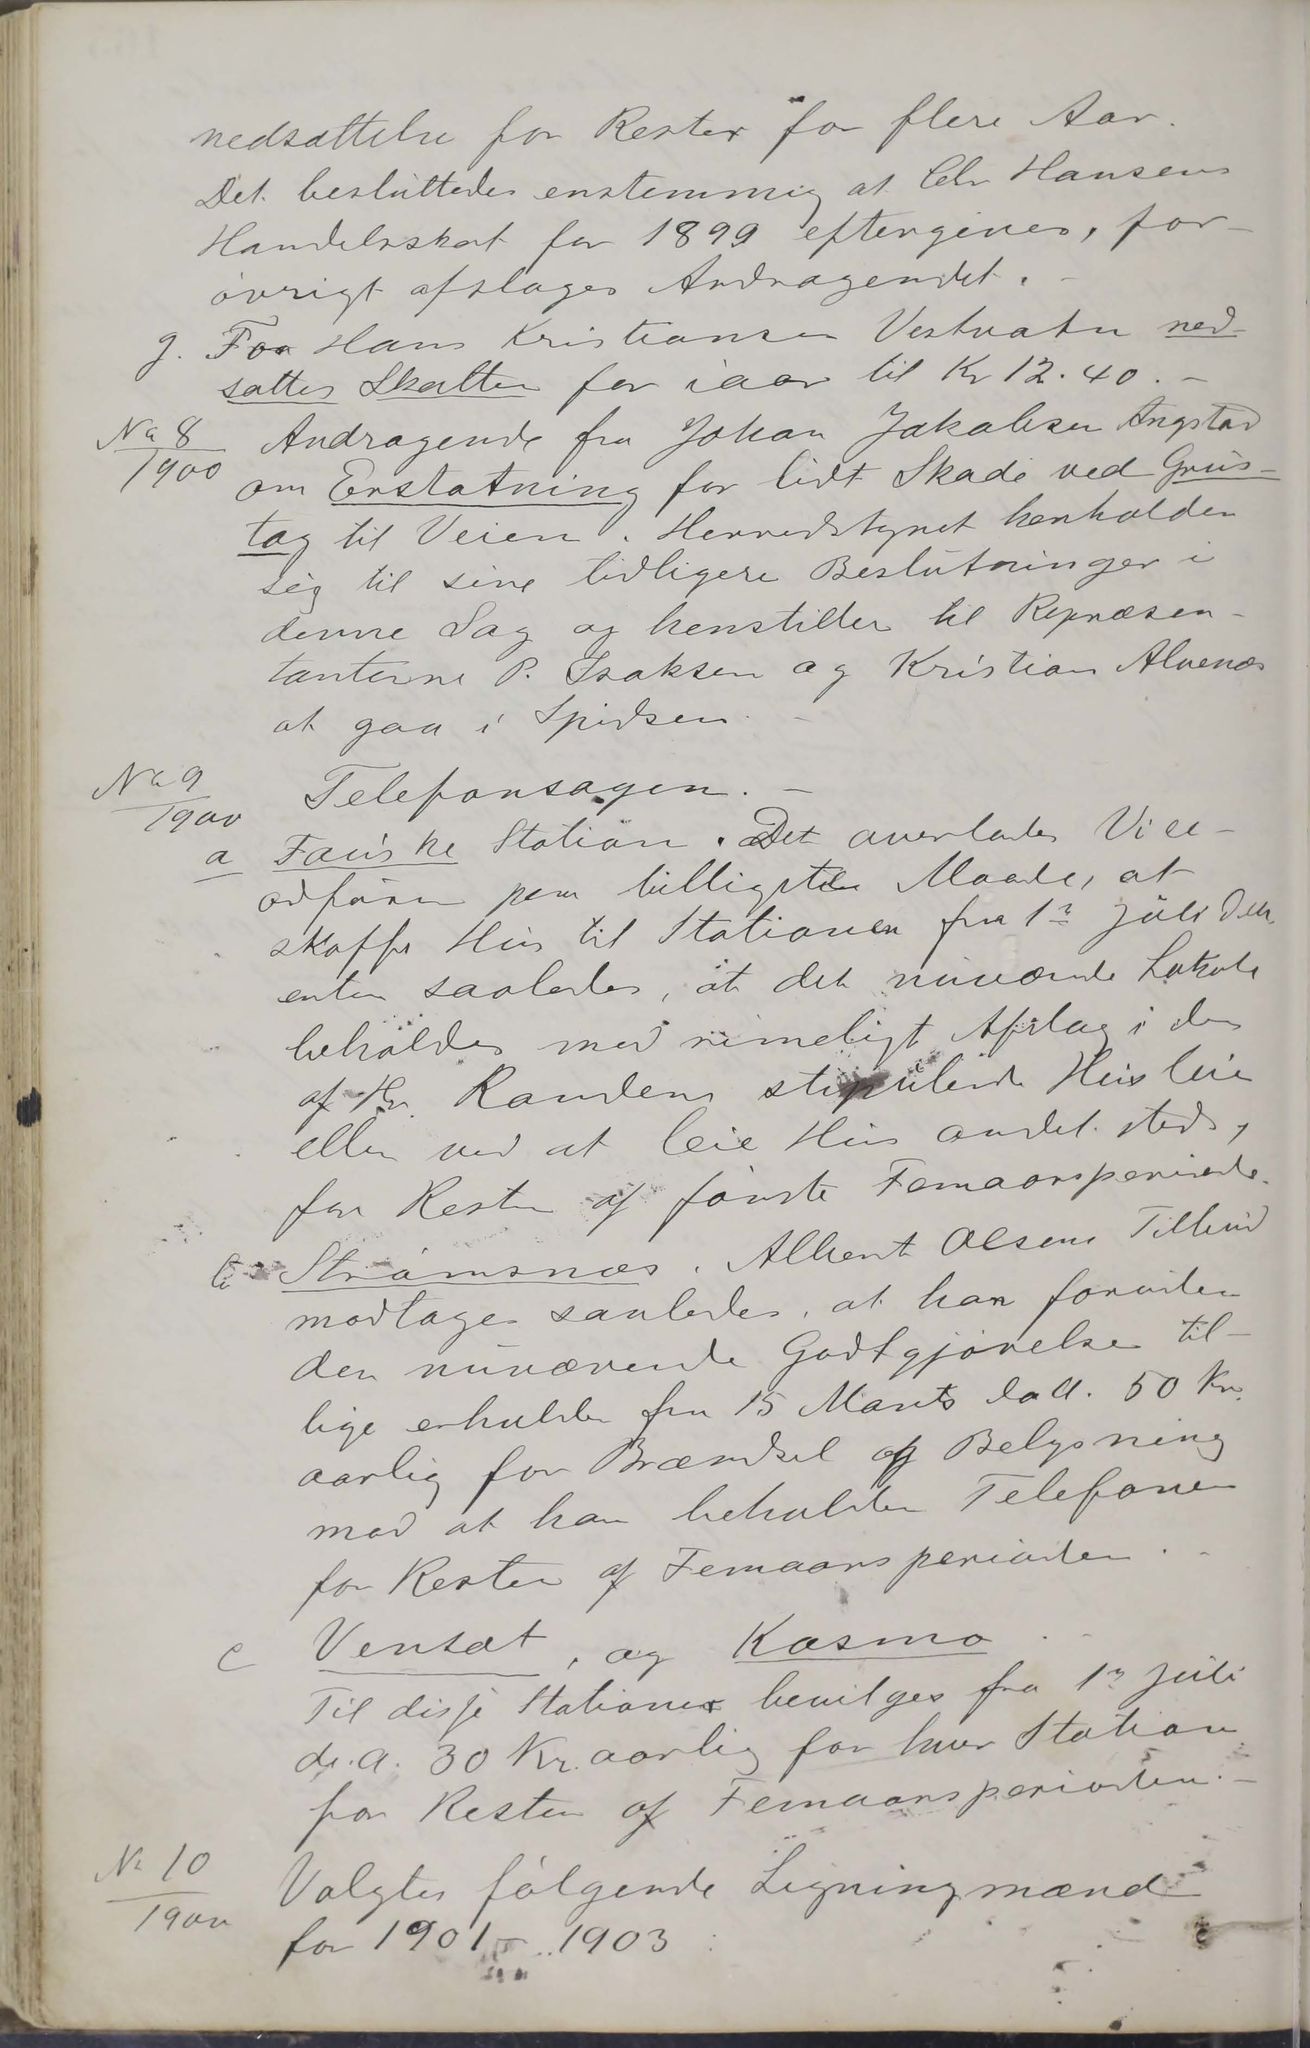 nedsættelse for Rester for flere Aar.
Det besluttedes enstemmig at Chr Hansens
Handelsskat for 1899 eftergives, for-
övrigt afslages Andragendet. -
g. For Hans Kristiansen Vestvatn ned-
sættes Skatten for iaar til Kr 12.40. -
No 8
1900
Andragende fra Johan Jakobsen Angstad
om Erstatning for lidt Skade ved Grus-
tag til Veien. Herredstyret henholder
sig til sine tidligere Beslutninger i
denne Sag og henstiller til Repræsen-
tanterne P. Isaksen og Kristian Alvenæs
at gaa i Spidsen. -
No 9
1900
Telefonsagen. -
a Fauske Station. Det overlades Vice-
ordfören paa billigste Maade, at
skaffe Hus til Stationen fra 1ste Juli
enten saaledes, at det nuværende Lokale
beholdes med rimeligt Afslag i den
af Hr. Randens stipulerede Husleie
eller ved at leie Hus andet steds,
for Resten af förste Femaarsperiode.
b Strömsnæs. Albert Olsens Tilbud
modtages saaledes, at han foruden
den nuværende Godtgjörelse til-
lige erholder fra 15 Marts d.a. 50 Kr.
aarlig for Brændsel og Belysning
mod at han beholder Telefonen
for Resten af Femaarsperioden. -
c Venset, og Kosmo
Til disse Stationer bevilges fra 1ste Juli
d.a. 30 Kr. aarlig for hver Station
for Resten af Femaarsperioden. -
No 10
1900
Valgtes fölgende Ligningsmænd
for 1901 - 1903: